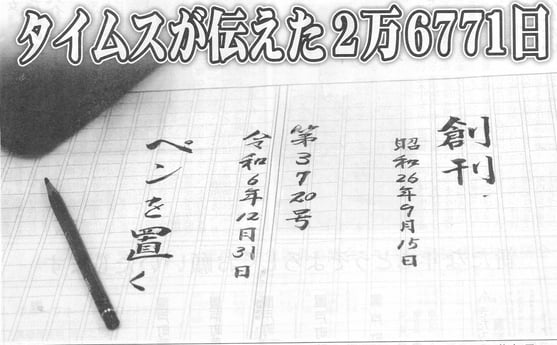 タイムスが伝えた2万6771日
創刊.
昭和26年9月15日
第3720号
令和6年12月31日
ペンを置く